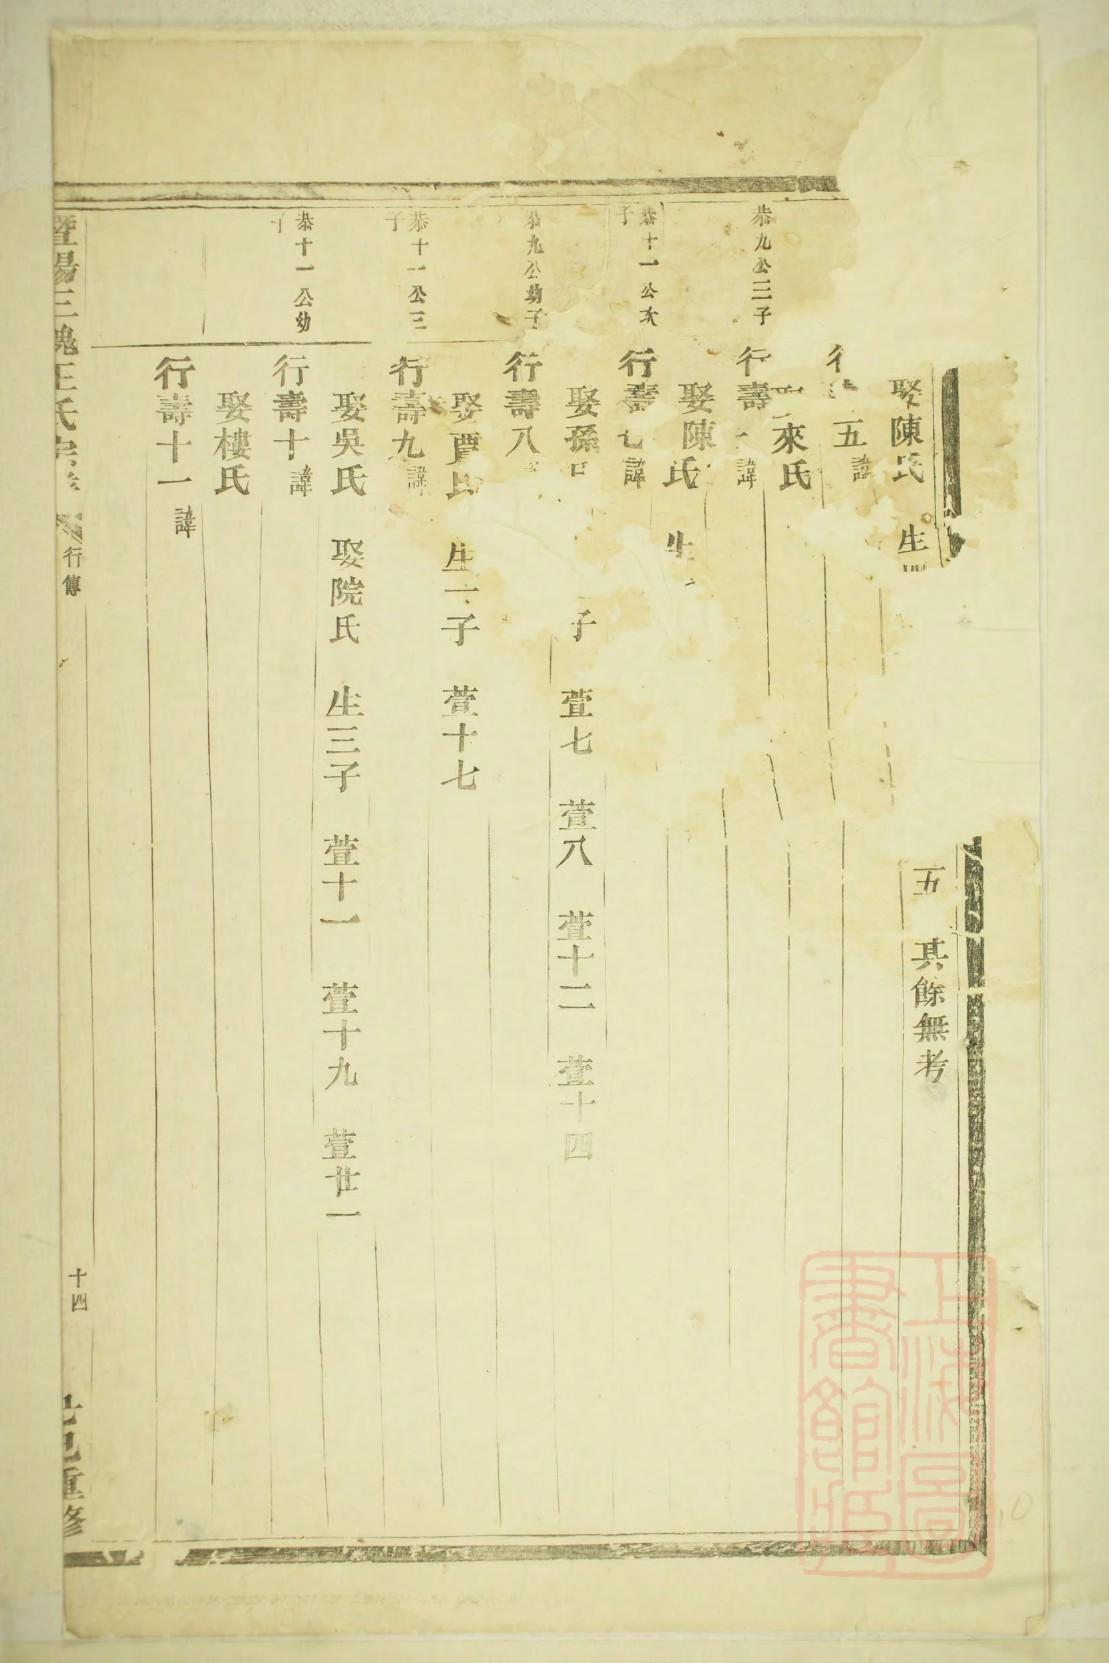 娶陳氏 生
五 其餘無考
五 諱
來氏
恭九公三子
行壽 諱
娶陳氏 生
恭十一公次子
行壽七 諱
娶孫氏 子 萱七 萱八 萱十二 萱十四
恭九公幼子
行壽八
娶賈氏 生一子 萱十七
恭十一公三子
行壽九 諱
娶吳氏 娶院氏 生三子 萱十一 萱十九 萱廿一
恭十一公幼子
行壽十 諱
娶樓氏
行壽十一 諱
暨陽三槐王氏宗譜 行傳 十四 己重修
上海圖書館藏